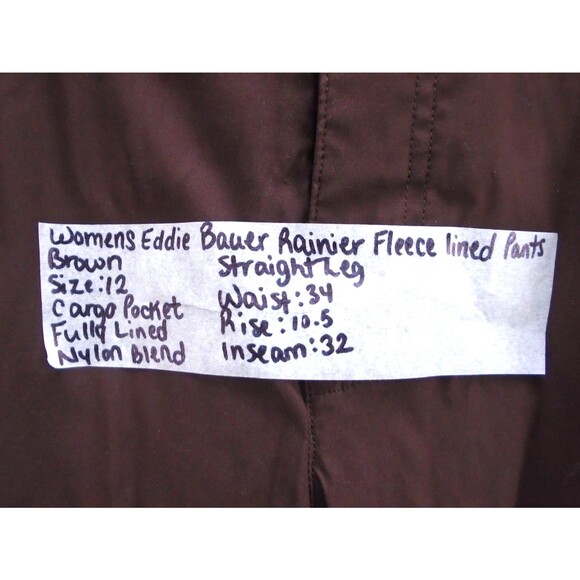 Womens Eddie Bauer Rainier Fleece lined Pants
Brown Straight Leg
Size:12 Waist:34
Cargo Pocket Rise:10.5
Fully Lined Inseam:32
Nylon Blend